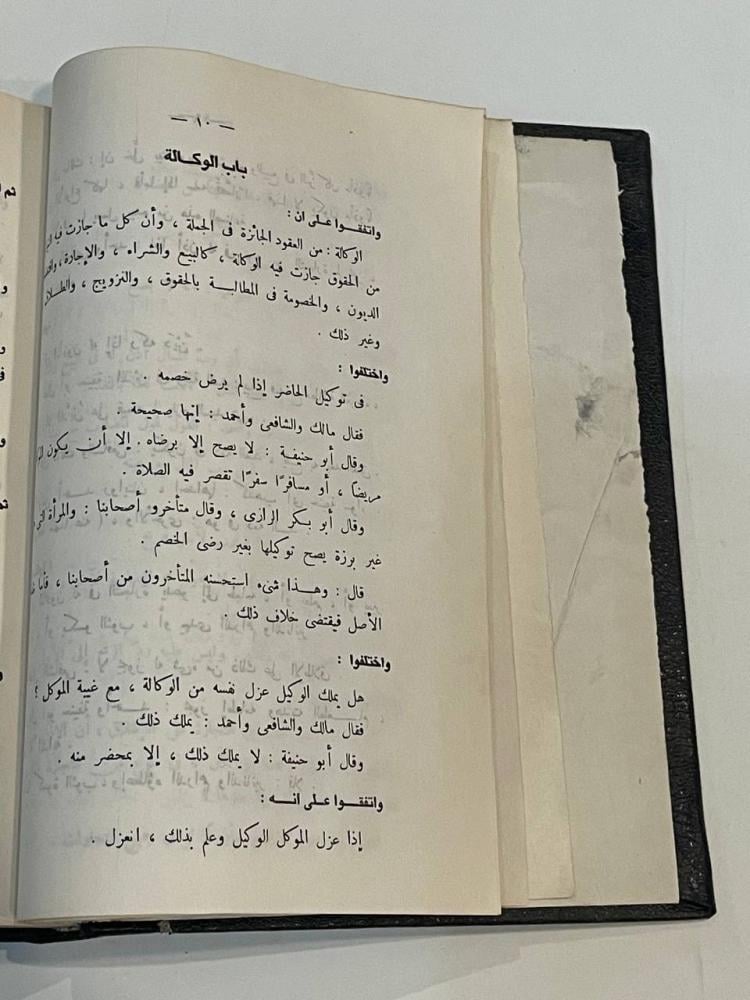 — ١٠ —
باب الوكالة
واتفقوا على ان :
الوكالة : من العقود الجائزة فى الجملة ، وأن كل ما جازت فيه
من الحقوق جازت فيه الوكالة ، كالبيع والشراء ، والإجارة ،
الديون ، والخصومة فى المطالبة بالحقوق ، والتزويج ، والطلاق
وغير ذلك .
واختلفوا :
فى توكيل الحاضر إذا لم يرض خصمه .
فقال مالك والشافعى وأحمد : إنها صحيحة .
وقال أبو حنيفة : لا يصح إلا برضاه . إلا أن يكون
مريضا ، أو مسافرًا سفرًا تقصر فيه الصلاة .
وقال أبو بكر الرازى ، وقال متأخرو أصحابنا : والمرأة التى
غير برزة يصح توكيلها بغير رضى الخصم .
قال : وهذا شىء استحسنه المتأخرون من أصحابنا ، فأما
الأصل فيقتضى خلاف ذلك .
واختلفوا :
هل يملك الوكيل عزل نفسه من الوكالة ، مع غيبة الموكل ؟
فقال مالك والشافعى وأحمد : يملك ذلك .
وقال أبو حنيفة : لا يملك ذلك ، إلا بمحضر منه .
واتفقوا على انه :
إذا عزل الموكل الوكيل وعلم بذلك ، انعزل .